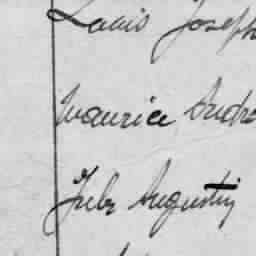 Louis Joseph
Maurice André
Jules Augustin